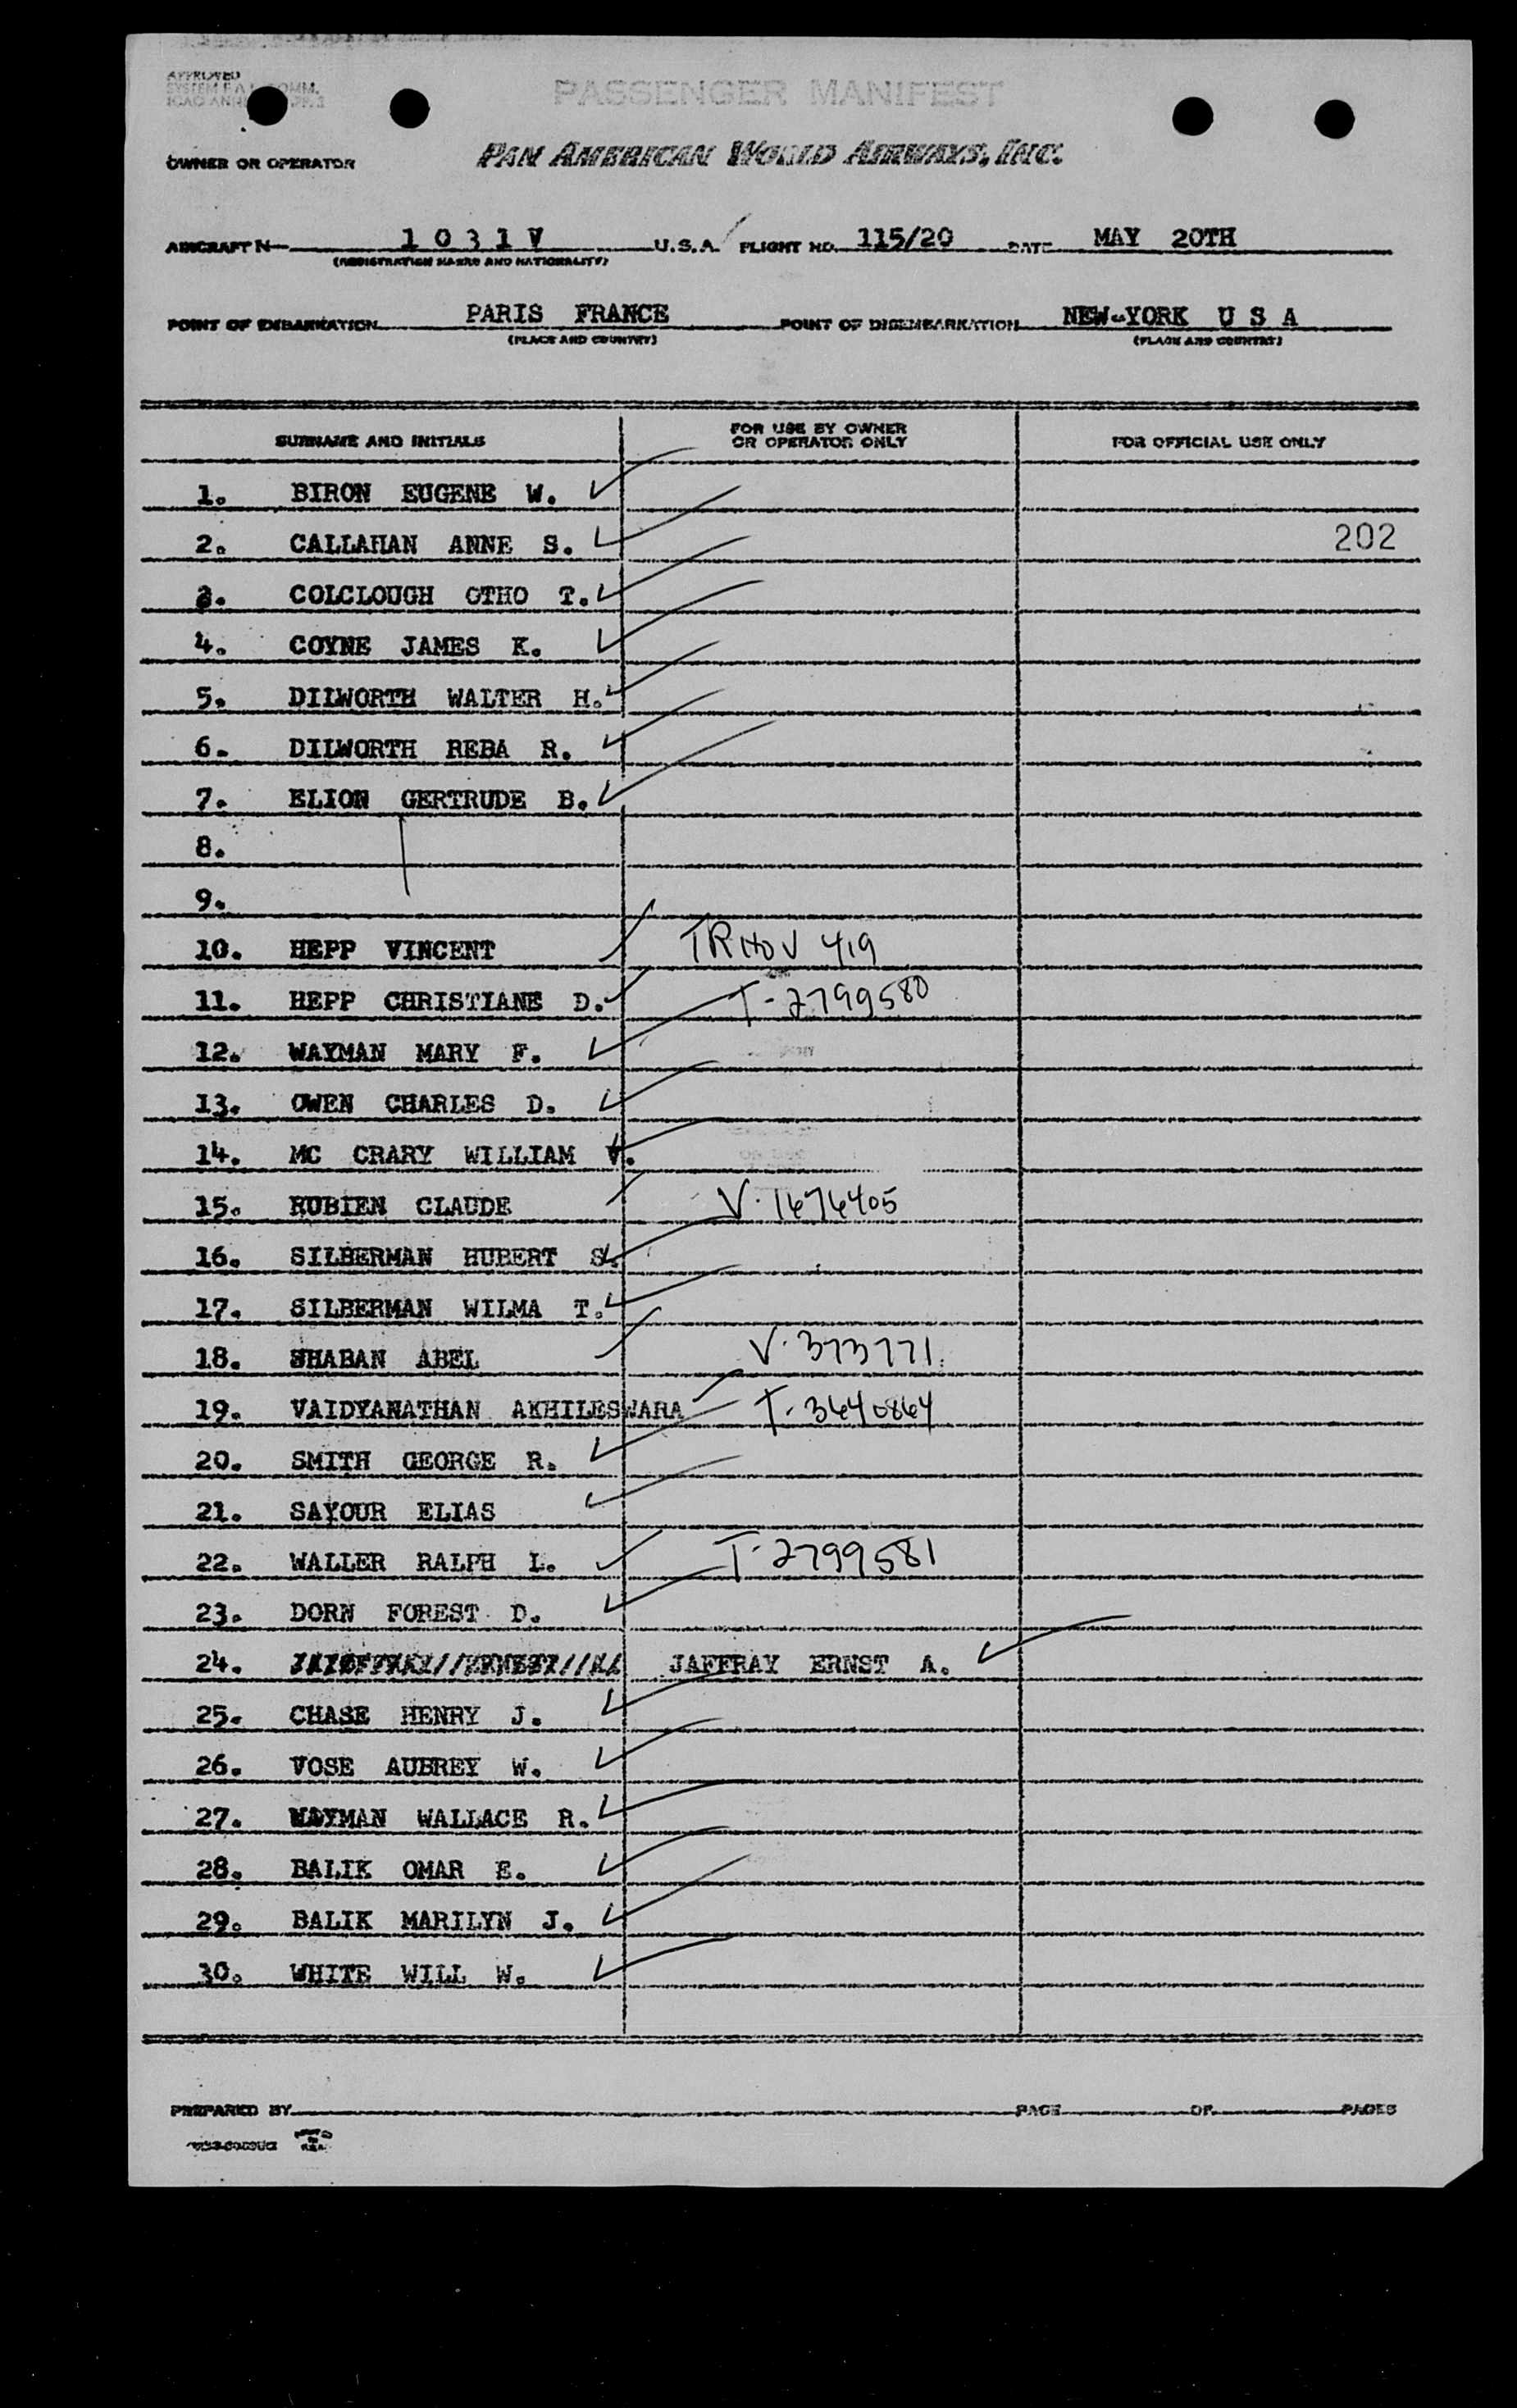 APPROVED
SYSTEM F A L COMM.
PASSENGER MANIFEST
OWNER OR OPERATOR PAN AMERICAN WORLD AIRWAYS, INC.
AIRCRAFT N 1 0 3 1 V U.S.A. FLIGHT NO. 115/20 DATE MAY 20TH
(REGISTRATION MARKS AND NATIONALITY)
POINT OF EMBARKATION PARIS FRANCE POINT OF DISEMBARKATION NEW-YORK U S A
(PLACE AND COUNTRY) (PLACE AND COUNTRY)
SURNAME AND INITIALS FOR USE BY OWNER OR OPERATOR ONLY FOR OFFICIAL USE ONLY
1. BIRON EUGENE W.
2. CALLAHAN ANNE S. 202
3. COLCLOUGH OTHO T.
4. COYNE JAMES K.
5. DILWORTH WALTER H.
6. DILWORTH REBA R.
7. ELION GERTRUDE B.
8.
9.
10. HEPP VINCENT 419
11. HEPP CHRISTIANE D. T-2799580
12. WAYMAN MARY F.
13. OWEN CHARLES D.
14. MC CRARY WILLIAM V.
15. RUBIEN CLAUDE V.1676405
16. SILBERMAN HUBERT S.
17. SILBERMAN WILMA T.
18. SHABAN ABEL V.373771
19. VAIDYANATHAN AKHILESWARA T-3640864
20. SMITH GEORGE R.
21. SAYOUR ELIAS
22. WALLER RALPH L. T-2799581
23. DORN FOREST D.
24. JAFFRAY ERNST A.
25. CHASE HENRY J.
26. VOSE AUBREY W.
27. WAYMAN WALLACE R.
28. BALIK OMAR E.
29. BALIK MARILYN J.
30. WHITE WILL W.
PREPARED BY PAGE OF PAGES